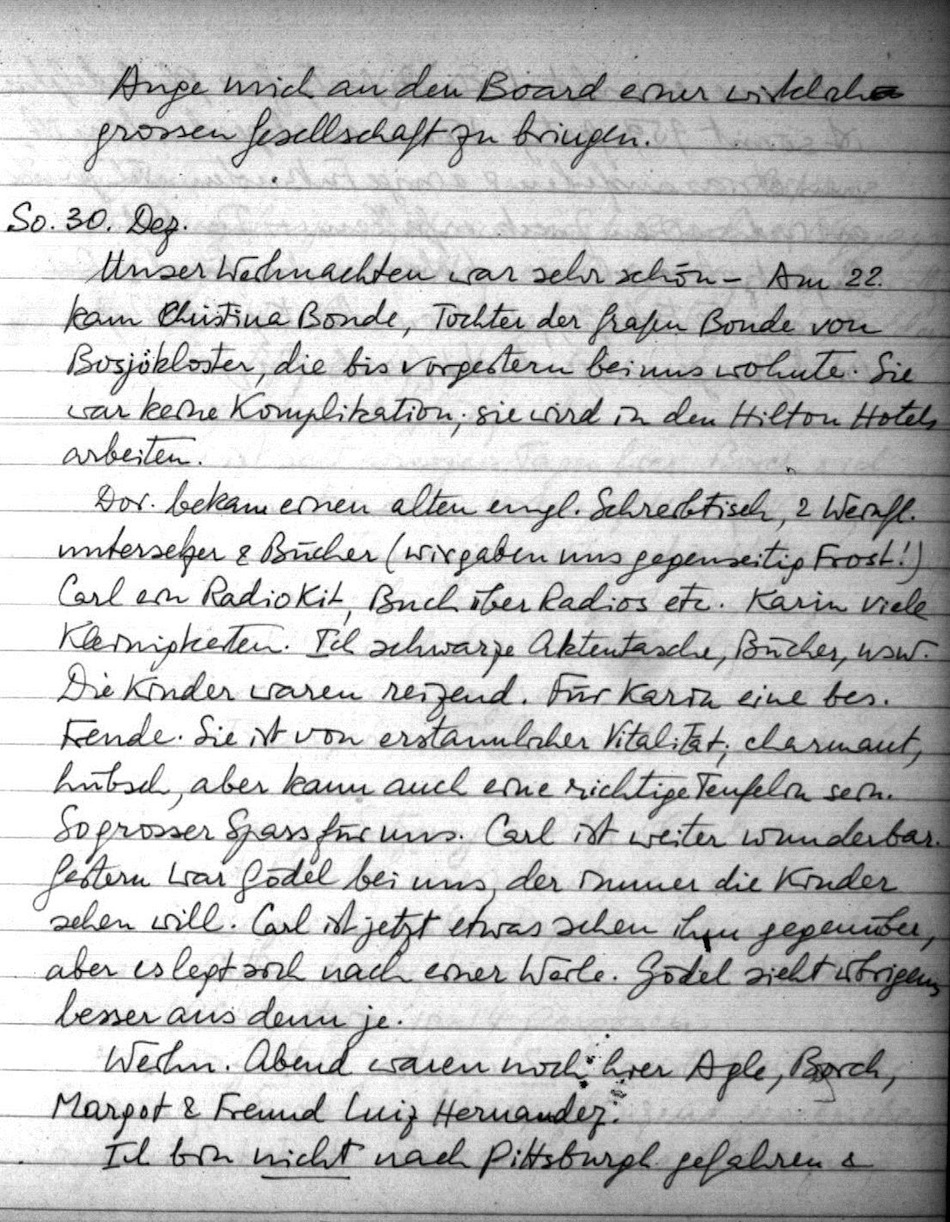 Auge mich an den Board einer wirklich
grossen Gesellschaft zu bringen.
So. 30. Dez.
Unser Weihnachten war sehr schön – Am 22.
kam Christina Bonde, Tochter der Grafen Bonde von
Bosjökloster, die bis vorgestern bei uns wohnte. Sie
war keine Komplikation; sie wird in den Hilton Hotels
arbeiten.
Dor. bekam einen alten engl. Schreibtisch, 2 Weinfl.
untersetzer & Bücher (wir gaben uns gegenseitig Frost!)
Carl ein Radio Kit, Buch über Radios etc. Karin viele
Kleinigkeiten. Ich schwarze Aktentasche, Bücher, usw.
Die Kinder waren reizend. Für Karin eine bes.
Freude. Sie ist von erstaunlicher Vitalität; charmant,
hübsch, aber kann auch eine richtige Teufelin sein.
So grosser Spass für uns. Carl ist weiter wunderbar.
Gestern war Gödel bei uns, der immer die Kinder
sehen will. Carl ist jetzt etwas scheu ihm gegenüber,
aber es legt sich nach einer Weile. Gödel sieht übrigens
besser aus denn je.
Weihn. Abend waren noch hier Agle,
Margot & Freund Luiz Hernandez.
Ich bin nicht nach Pittsburgh gefahren &